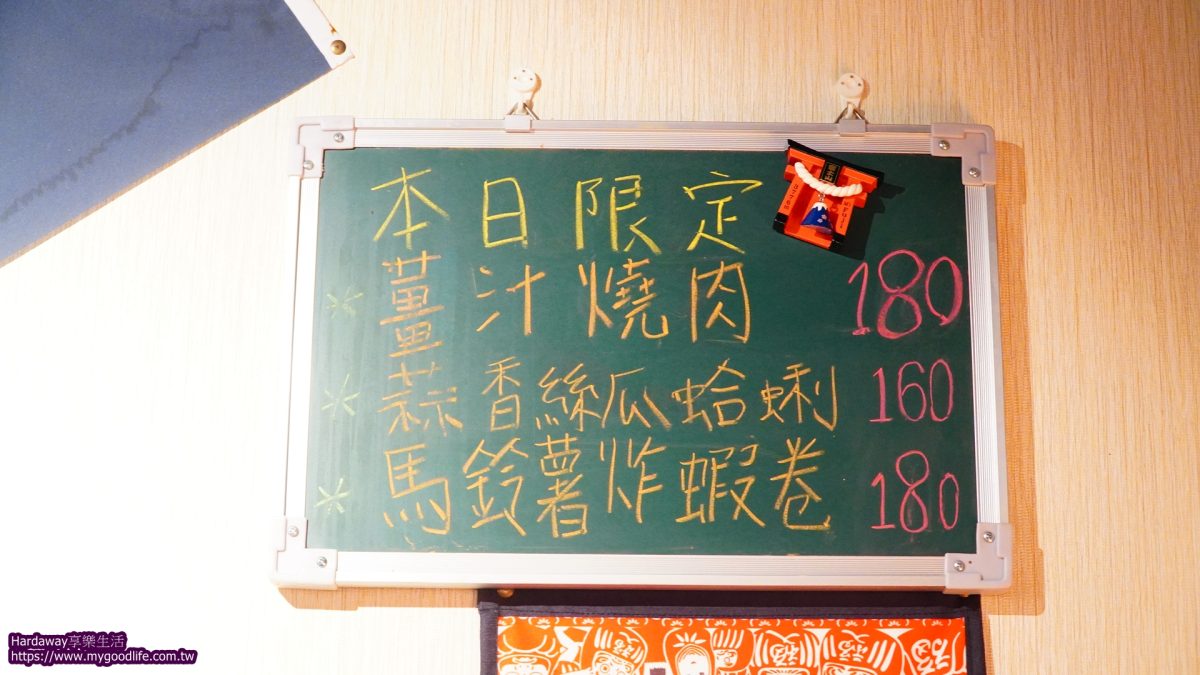 本日限定
*薑汁燒肉 180
*蒜香絲瓜蛤蜊 160
*馬鈴薯炸蝦卷 180
Hardaway享樂生活
https://www.mygoodlife.com.tw